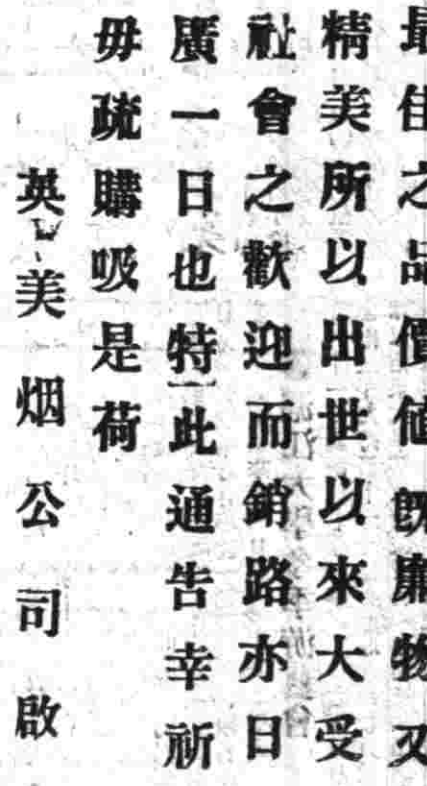 最佳之品價值既廉物又
精美所以出世以來大受
社會之歡迎而銷路亦日
廣一日也特此通告幸祈
毋疏購吸是荷
英美烟公司啟